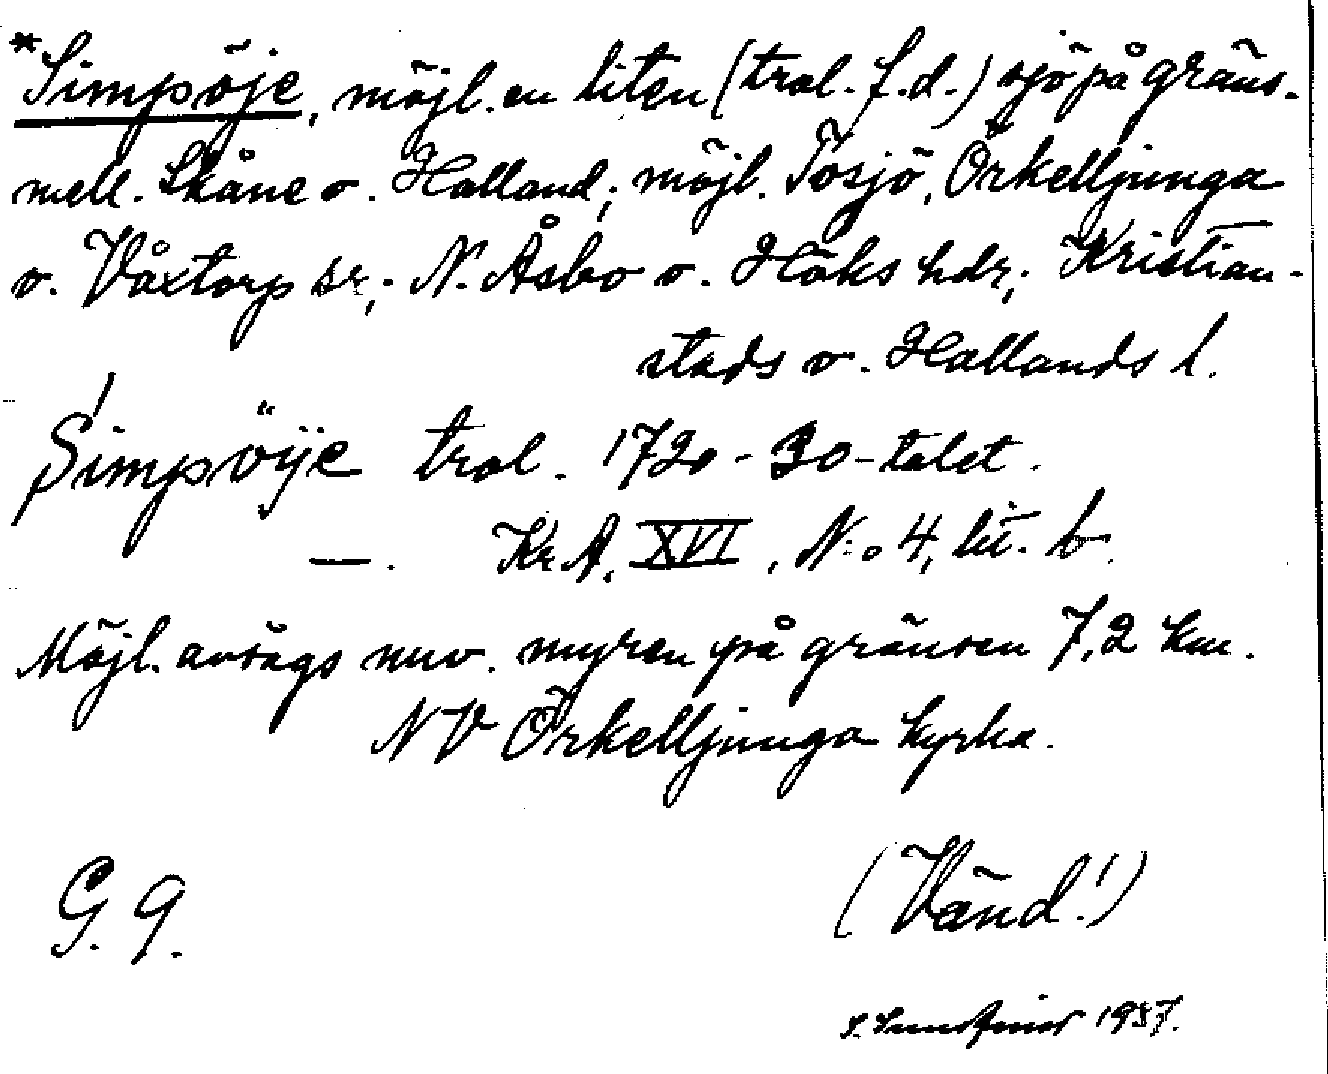 *Simpöje, möjl. en liten (trol. f.d.) sjö på gräns.
mell. Skåne o. Halland; möjl. Tosjö, Örkelljunga
o. Våxtorp sr; N. Åsbo o. Höks hdr; Kristian-
stads o. Hallands l.
Simpöije trol. 1720-30-talet.
—. KrA, XVI, N:o 4, lit. b.
Möjl. avsågs nuv. myren på gränsen 7,2 km.
NV Örkelljunga kyrka.
G. 9.
(Vänd!)
1957.